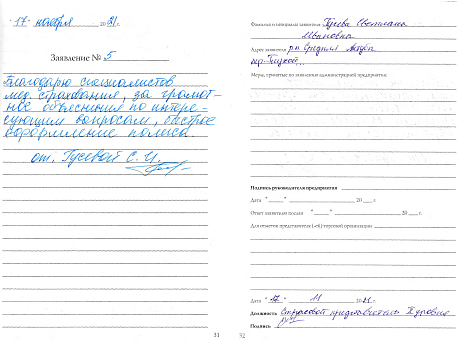 "17" ноября 2021.
Заявление № 5
Благодарю специалистов
мед. страхования, за грамот-
ное объяснения по интере-
сующим вопросам, быстрое
оформление полиса.
от. Гусевой С. И.
31
Фамилия и инициалы заявителя Гусева Светлана
Ивановна
Адрес заявителя рп Средняя Ахтуба
Меры, принятые по заявлению администрацией предприятия:
Подпись руководителя предприятия
Дата "___" ______ 20___г.
Ответ заявителю послан "___" ______ 20___г.
Для отметки представителя (-ей) торговой организации
Дата "17" 11 2021г.
Должность Страховой представитель II уровня
Подпись
32